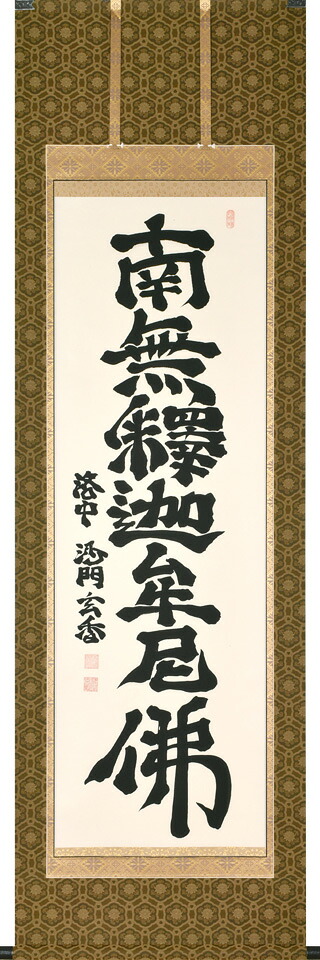 南無釋迦牟尼佛
洛中 沙門 玄香